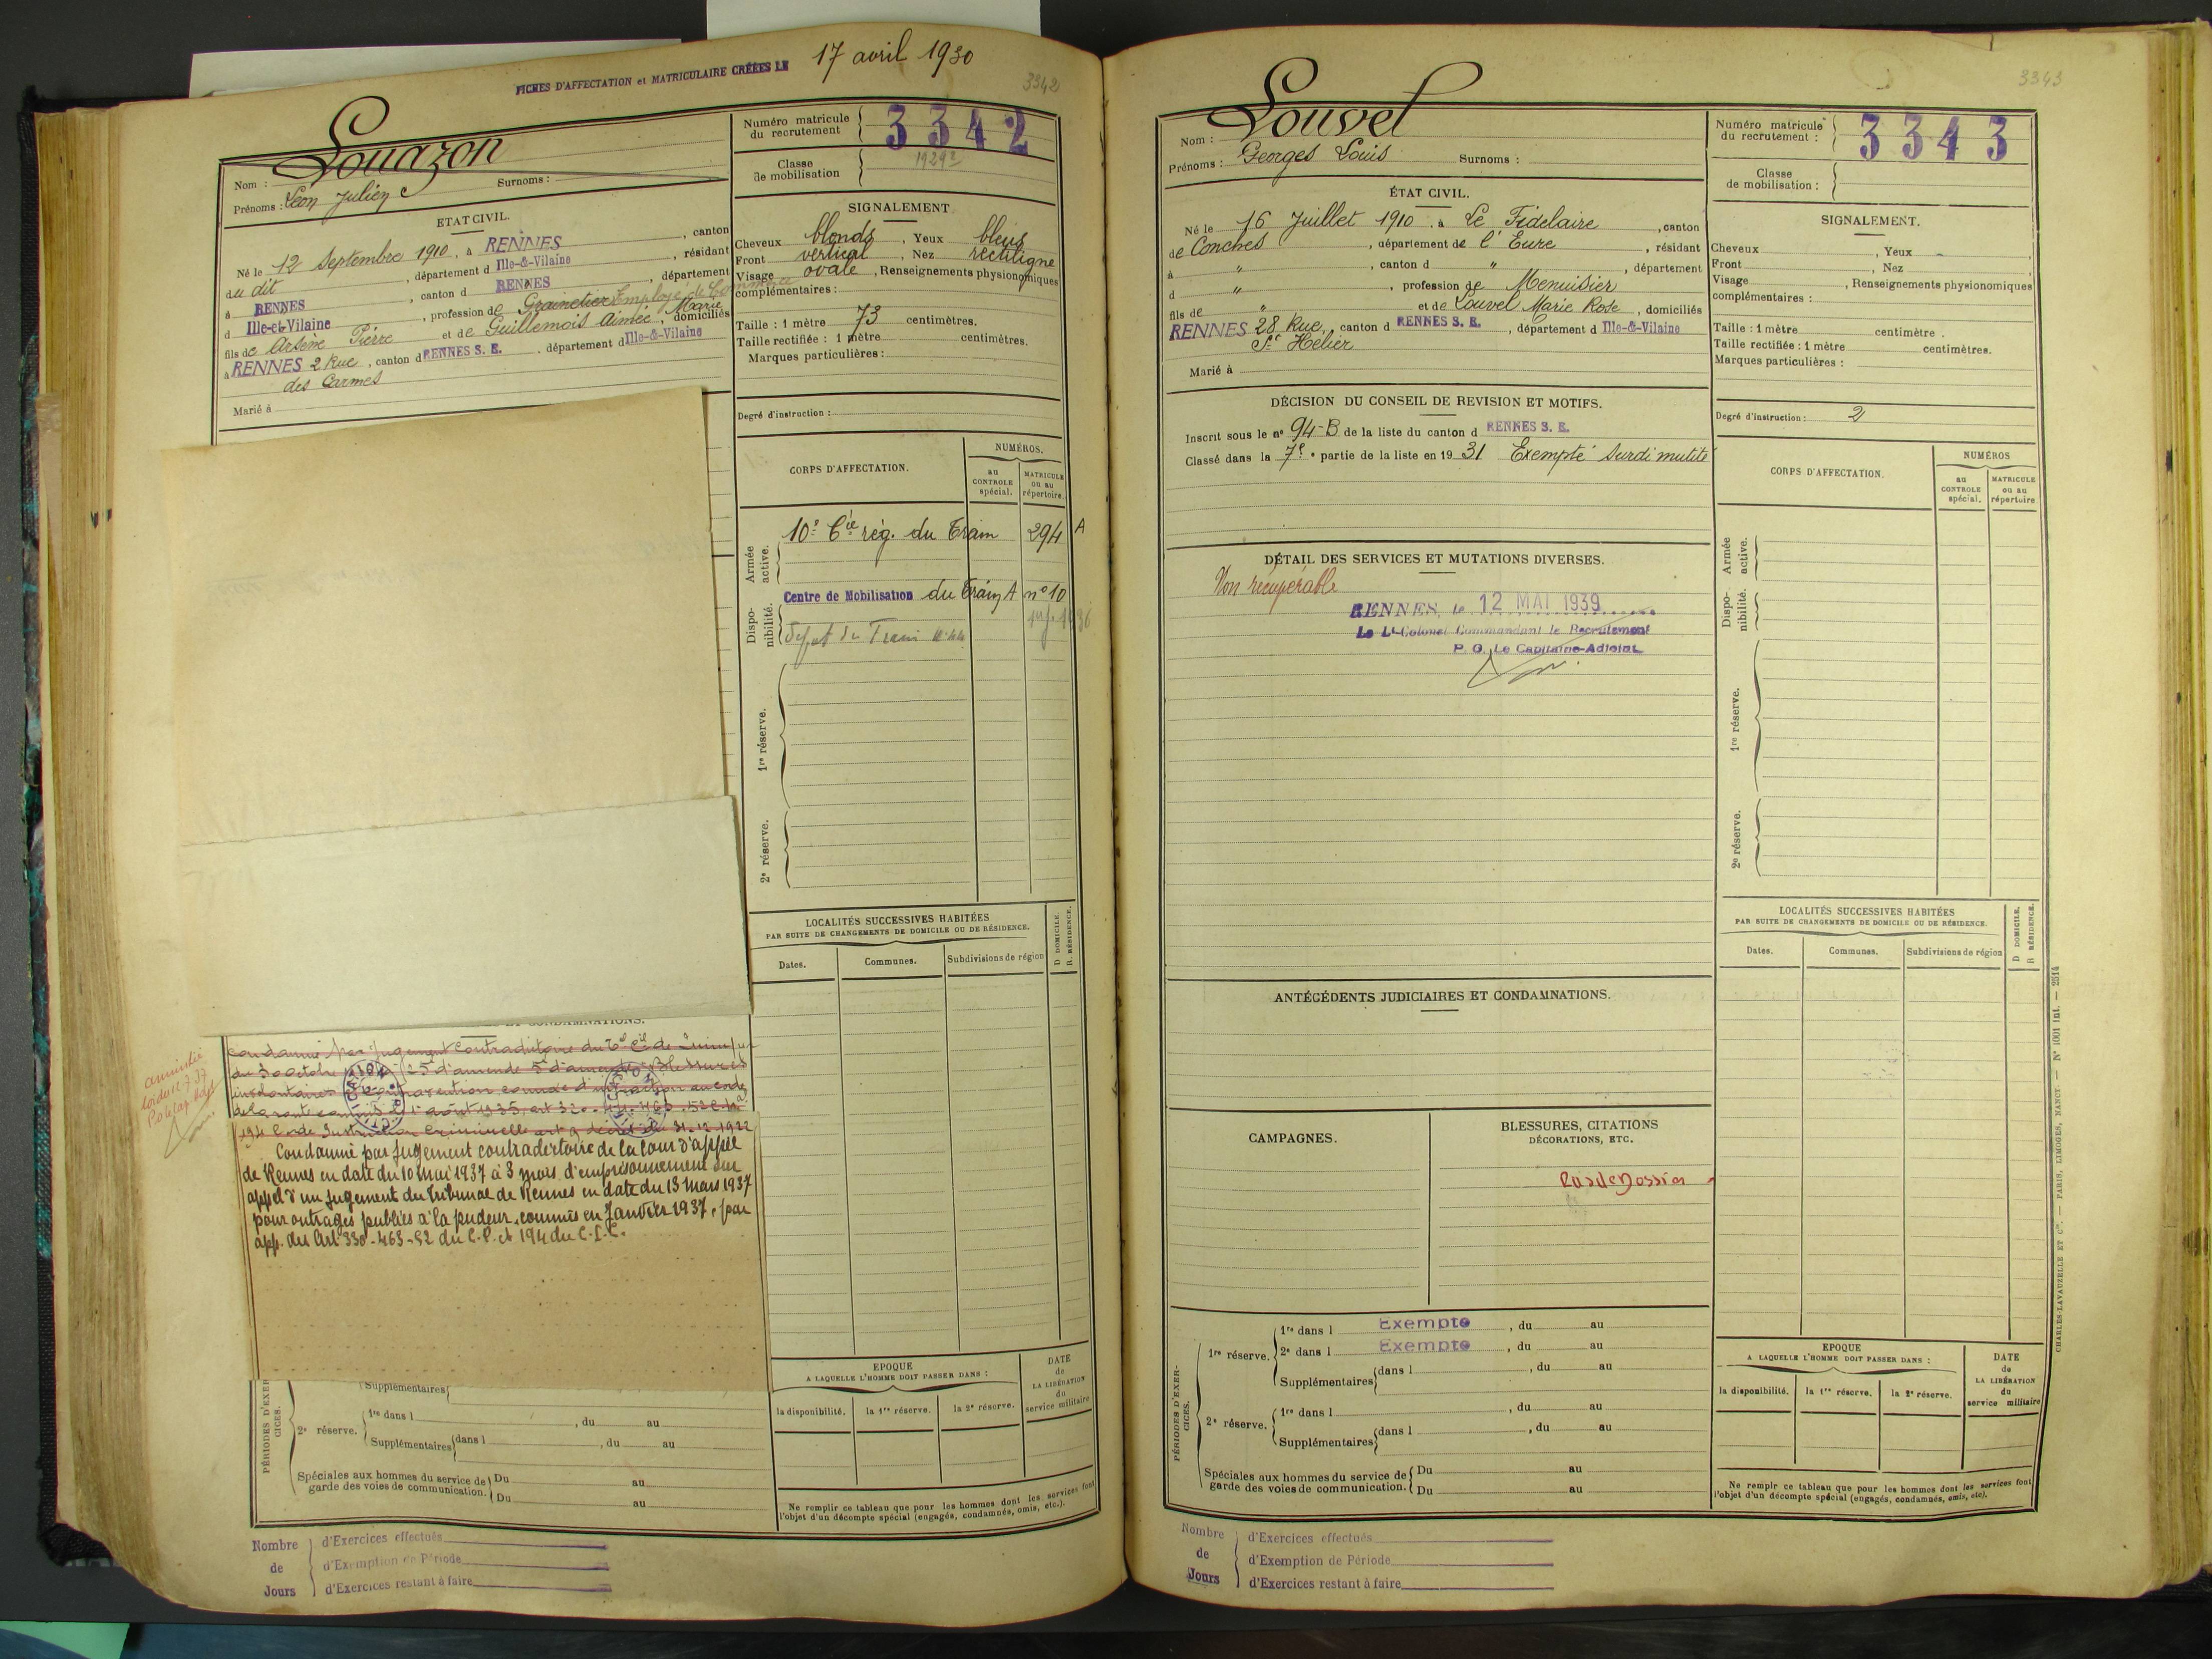 FICHES D'AFFECTATION et MATRICULAIRE CRÉÉES LE 17 avril 1930
3342
Nom : Louazon
Prénoms : Léon Julien Surnoms :
ETAT CIVIL.
Né le 12 Septembre 1910, à RENNES, canton
du dit, département d Ille-&-Vilaine, résidant
à RENNES, canton d RENNES, département
d Ille-et-Vilaine, profession de Grainetier Employé de Commerce
fils de Arsène Pierre et de Guillemois Aimée Marie, domiciliés
à RENNES 2 Rue, canton d RENNES S. E. département d Ille-&-Vilaine
des Carmes
Marié à
Numéro matricule
du recrutement
3342
Classe
de mobilisation
1929
SIGNALEMENT
Cheveux blonds, Yeux bleus
Front vertical, Nez rectiligne
Visage ovale, Renseignements physionomiques
complémentaires :
Taille : 1 mètre 73 centimètres.
Taille rectifiée : 1 mètre centimètres.
Marques particulières :
Degré d'instruction :
CORPS D'AFFECTATION.
NUMÉROS.
au
CONTROLE
spécial.
MATRICULE
ou au
répertoire.
Armée
active.
10e Cie rég. du Train 294 A
Dispo-
nibilité.
Centre de Mobilisation du Train A n° 10
Dépot du Train
1re réserve.
2e réserve.
LOCALITÉS SUCCESSIVES HABITÉES
PAR SUITE DE CHANGEMENTS DE DOMICILE OU DE RÉSIDENCE.
D DOMICILE.
R RÉSIDENCE.
Dates.
Communes.
Subdivisions de région
ET CONDAMNATIONS.
Condamné par jugement contradictoire du
du 30 octobre 25 d'amende 5 d'amende Blessures
involontaires contravention
de la route commis le 1 août 1935, art 320
194 Code Instruction Criminelle art 9 décret du 31.12.1922
amnistié
Condamné par jugement contradictoire de la Cour d'appel
de Rennes en date du 10 mai 1937 à 3 mois d'emprisonnement sur
appel d'un jugement du Tribunal de Rennes en date du 13 mars 1937
pour outrages publics à la pudeur, commis en Janvier 1937, par
app. des Art. 330-463-52 du C.P. et 194 du C.I.C.
PÉRIODES D'EXER-
CICES.
Supplémentaires
2e réserve.
1re dans l , du au
Supplémentaires dans l , du au
Spéciales aux hommes du service de
garde des voies de communication.
Du au
Du au
EPOQUE
A LAQUELLE L'HOMME DOIT PASSER DANS :
la disponibilité.
la 1re réserve.
la 2e réserve.
DATE
de
LA LIBÉRATION
du
service militaire
Ne remplir ce tableau que pour les hommes dont les services font
l'objet d'un décompte spécial (engagés, condamnés, omis, etc.).
Nombre
de
Jours
d'Exercices effectués
d'Exemption de Période
d'Exercices restant à faire
3343
Nom : Louvel
Prénoms : Georges Louis Surnoms :
ÉTAT CIVIL.
Né le 16 Juillet 1910, à Le Fidelaire, canton
de Conches, département de l'Eure, résidant
à ", canton d ", département
d ", profession de Menuisier
fils de " et de Louvel Marie Rose, domiciliés
RENNES 28 Rue, canton d RENNES S. E., département d Ille-&-Vilaine
St Hélier
Marié à
Numéro matricule
du recrutement :
3343
Classe
de mobilisation :
SIGNALEMENT.
Cheveux , Yeux
Front , Nez
Visage , Renseignements physionomiques
complémentaires :
Taille : 1 mètre centimètre .
Taille rectifiée : 1 mètre centimètres.
Marques particulières :
Degré d'instruction : 2
DÉCISION DU CONSEIL DE REVISION ET MOTIFS.
Inscrit sous le n° 94-B de la liste du canton d RENNES S. E.
Classé dans la 7e partie de la liste en 1931 Exempté Surdi mutité
DÉTAIL DES SERVICES ET MUTATIONS DIVERSES.
Non récupérable
RENNES, le 12 MAI 1939
Le Lt-Colonel Commandant le Recrutement
P. O. Le Capitaine-Adjoint
CORPS D'AFFECTATION.
NUMÉROS
au
CONTROLE
spécial.
MATRICULE
ou au
répertoire
Armée
active.
Dispo-
nibilité.
1re réserve.
2e réserve.
ANTÉCÉDENTS JUDICIAIRES ET CONDAMNATIONS.
CAMPAGNES.
BLESSURES, CITATIONS
DÉCORATIONS, ETC.
Pas de Dossier
LOCALITÉS SUCCESSIVES HABITÉES
PAR SUITE DE CHANGEMENTS DE DOMICILE OU DE RÉSIDENCE.
D DOMICILE.
R RÉSIDENCE.
Dates.
Communes.
Subdivisions de région
PÉRIODES D'EXER-
CICES.
1re réserve.
1re dans l Exempté , du au
2e dans l Exempté , du au
Supplémentaires dans l , du au
2e réserve.
1re dans l , du au
Supplémentaires dans l , du au
Spéciales aux hommes du service de
garde des voies de communication.
Du au
Du au
EPOQUE
A LAQUELLE L'HOMME DOIT PASSER DANS :
la disponibilité.
la 1re réserve.
la 2e réserve.
DATE
de
LA LIBÉRATION
du
service militaire
Ne remplir ce tableau que pour les hommes dont les services font
l'objet d'un décompte spécial (engagés, condamnés, omis, etc).
CHARLES-LAVAUZELLE ET Cie. — PARIS, LIMOGES, NANCY. — N° 1001 int. — 2514
Nombre
de
Jours
d'Exercices effectués
d'Exemption de Période
d'Exercices restant à faire